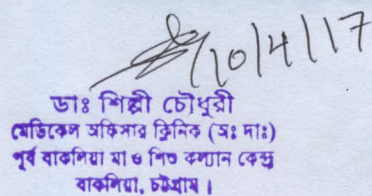 10/4/17
ডাঃ শিল্পী চৌধুরী
মেডিকেল অফিসার ক্লিনিক (অঃ দাঃ)
পূর্ব বাকলিয়া মা ও শিশু কল্যান কেন্দ্র
বাকলিয়া, চট্টগ্রাম।